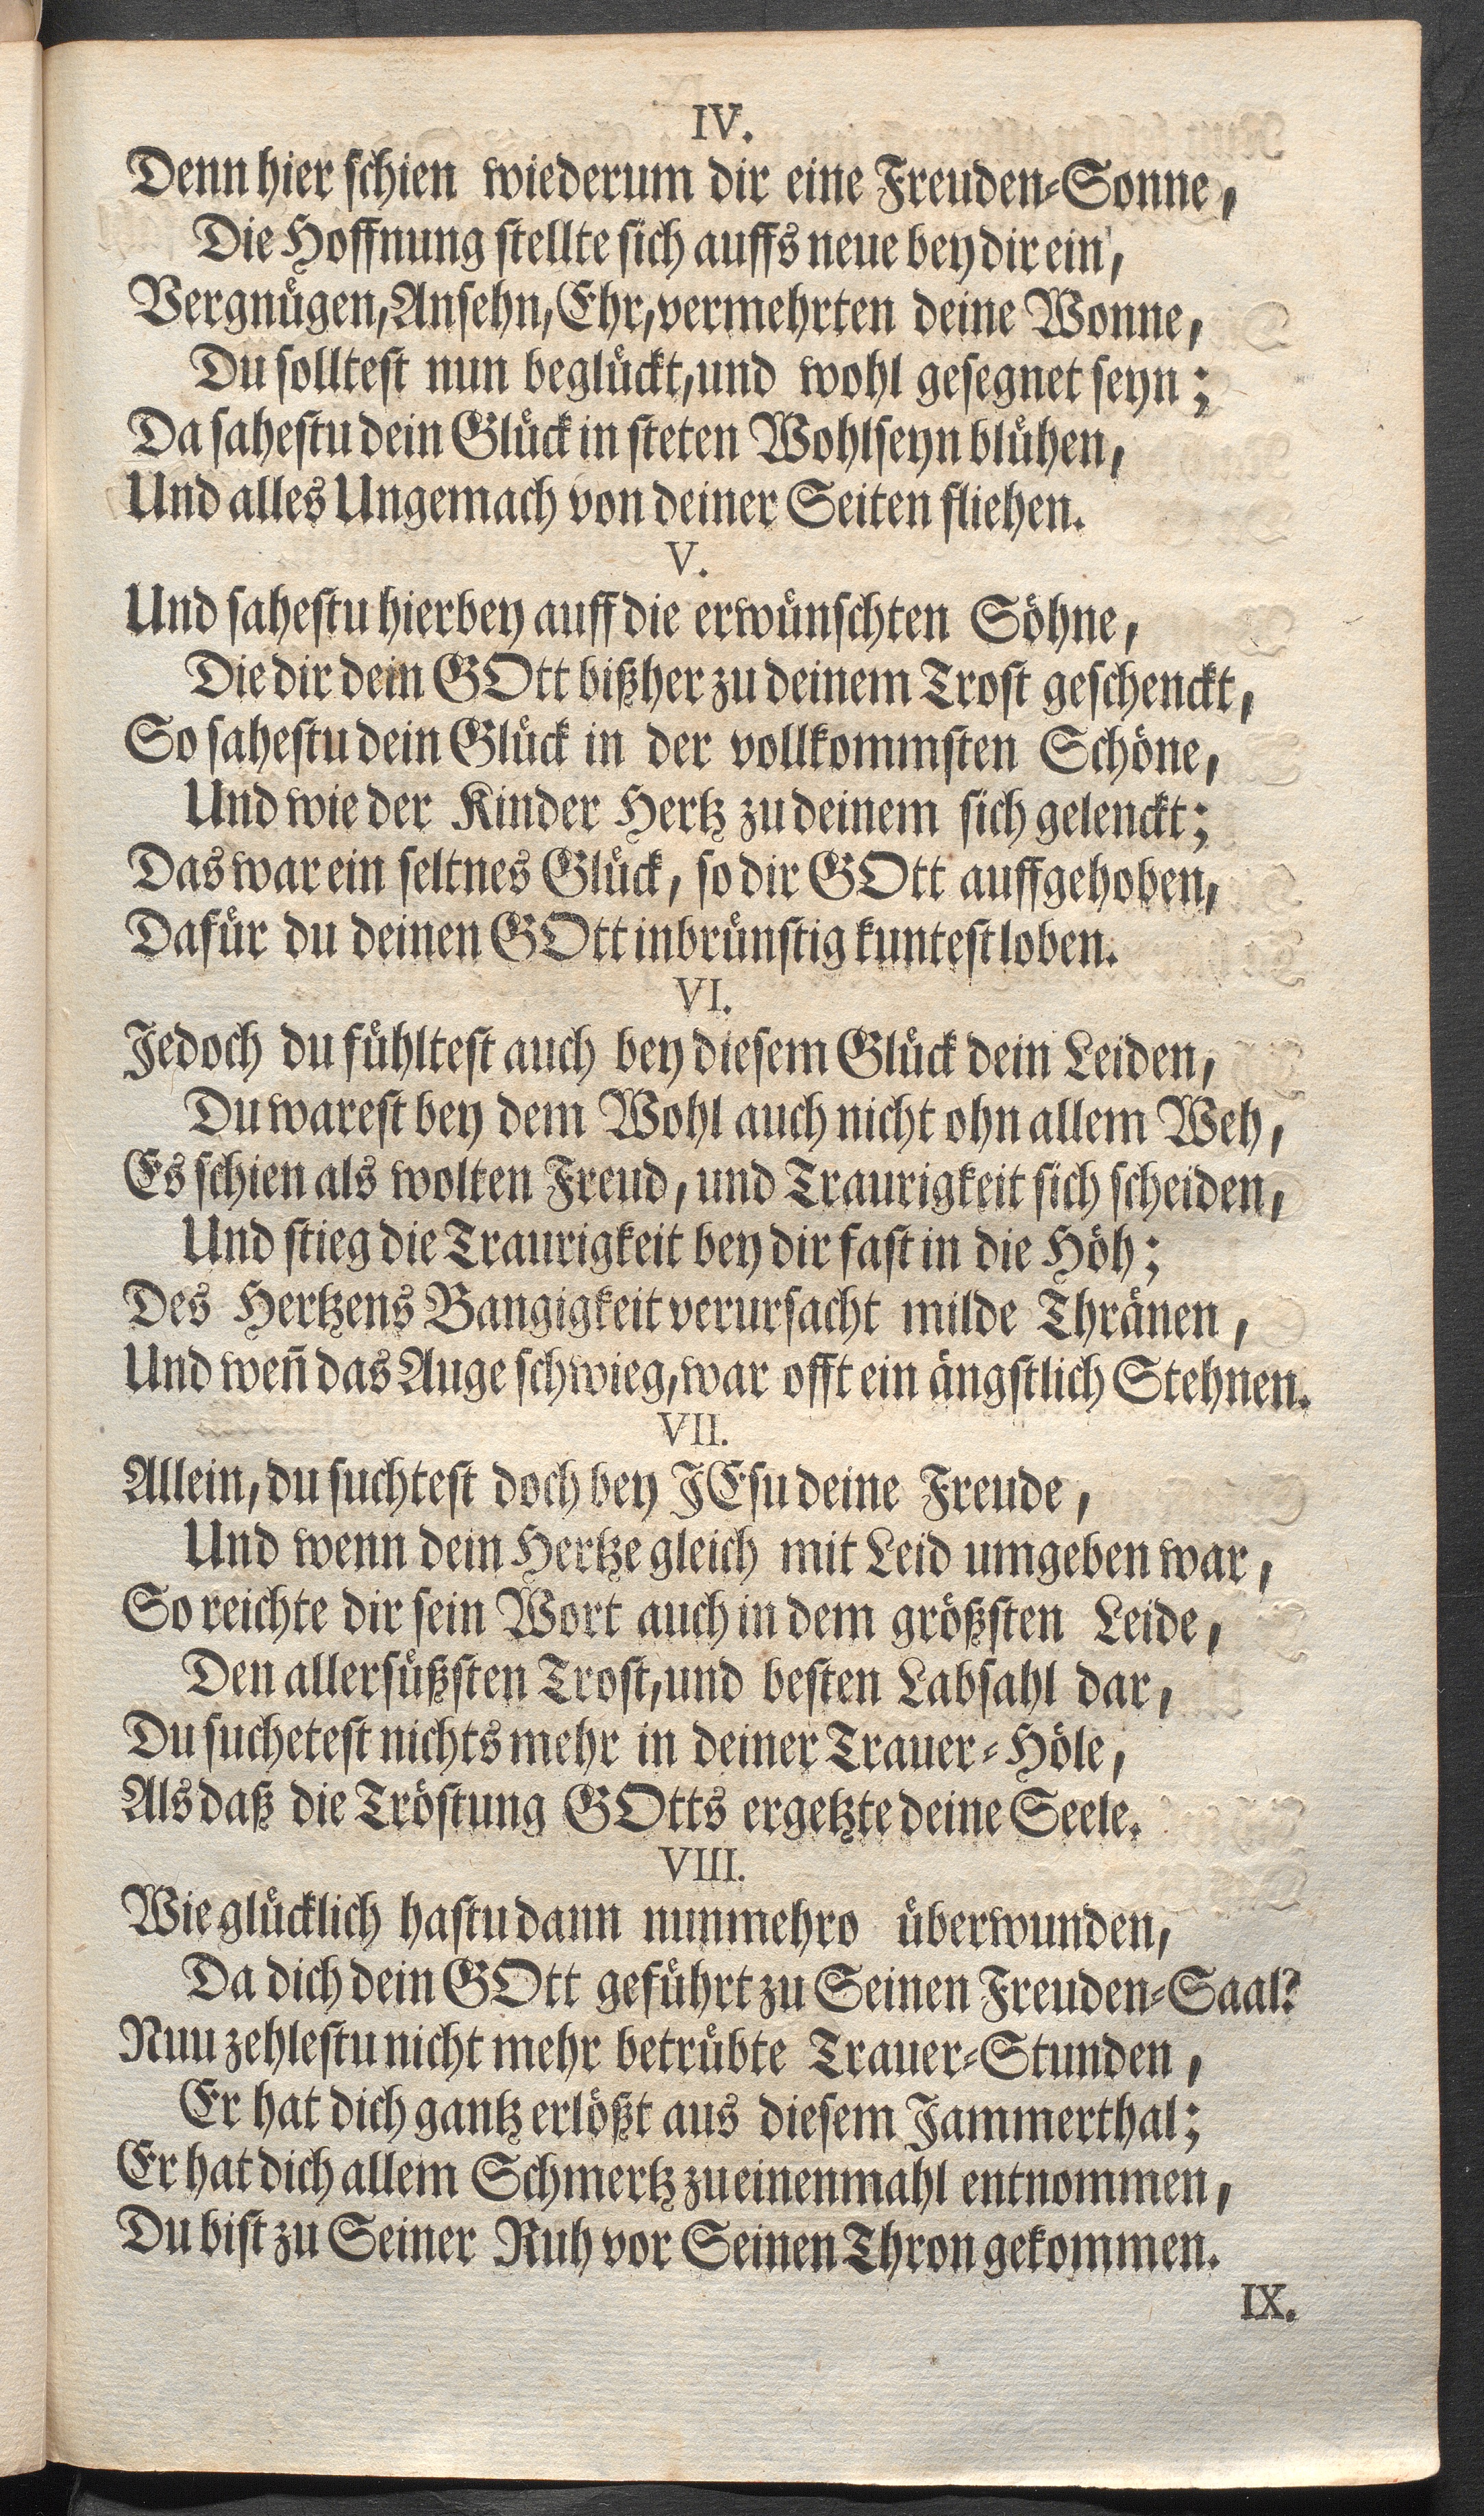 IV.
Denn hier schien wiederum dir eine Freuden-Sonne,
Die Hoffnung stellte sich auffs neue bey dir ein,
Vergnügen, Ansehn, Ehr, vermehrten deine Wonne,
Du solltest nun beglückt, und wohl gesegnet seyn;
Da sahestu dein Glück in steten Wohlseyn blühen,
Und alles Ungemach von deiner Seiten fliehen.
V.
Und sahestu hierbey auff die erwünschten Söhne,
Die dir dein GOtt bißher zu deinem Trost geschenckt,
So sahestu dein Glück in der vollkommsten Schöne,
Und wie der Kinder Hertz zu deinem sich gelenckt;
Das war ein seltnes Glück, so dir GOtt auffgehoben,
Dafür du deinen GOtt inbrünstig kuntest loben.
VI.
Jedoch du fühltest auch bey diesem Glück dein Leiden,
Du warest bey dem Wohl auch nicht ohn allem Weh,
Es schien als wolten Freud, und Traurigkeit sich scheiden,
Und stieg die Traurigkeit bey dir fast in die Höh;
Des Hertzens Bangigkeit verursacht milde Thränen,
Und weñ das Auge schwieg, war offt ein ängstlich Stehnen.
VII.
Allein, du suchtest doch bey JEsu deine Freude,
Und wenn dein Hertze gleich mit Leid umgeben war,
So reichte dir sein Wort auch in dem größsten Leide,
Den allersüßsten Trost, und besten Labsahl dar,
Du suchetest nichts mehr in deiner Trauer-Höle,
Als daß die Tröstung GOtts ergetzte deine Seele.
VIII.
Wie glücklich hastu dann nunmehro überwunden,
Da dich dein GOtt geführt zu Seinen Freuden-Saal?
Nuu zehlestu nicht mehr betrübte Trauer-Stunden,
Er hat dich gantz erlößt aus diesem Jammerthal;
Er hat dich allem Schmertz zu einenmahl entnommen,
Du bist zu Seiner Ruh vor Seinen Thron gekommen.
IX.